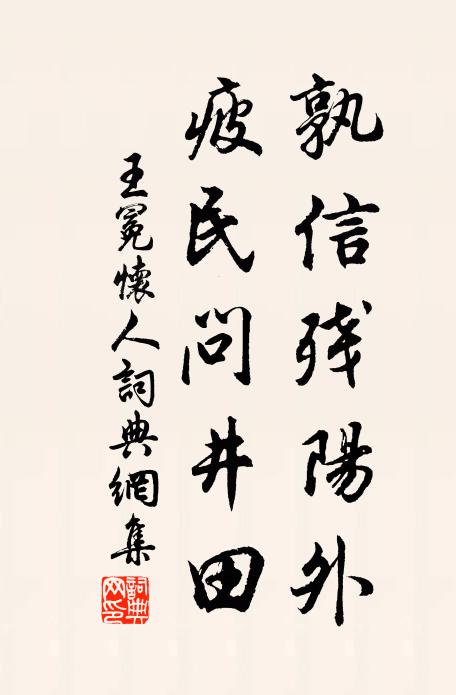 孰信残陽外
疲民問井田
王冕懷人詞典網集
詞典网印